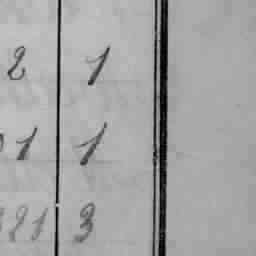 2 1
1 1
21 3